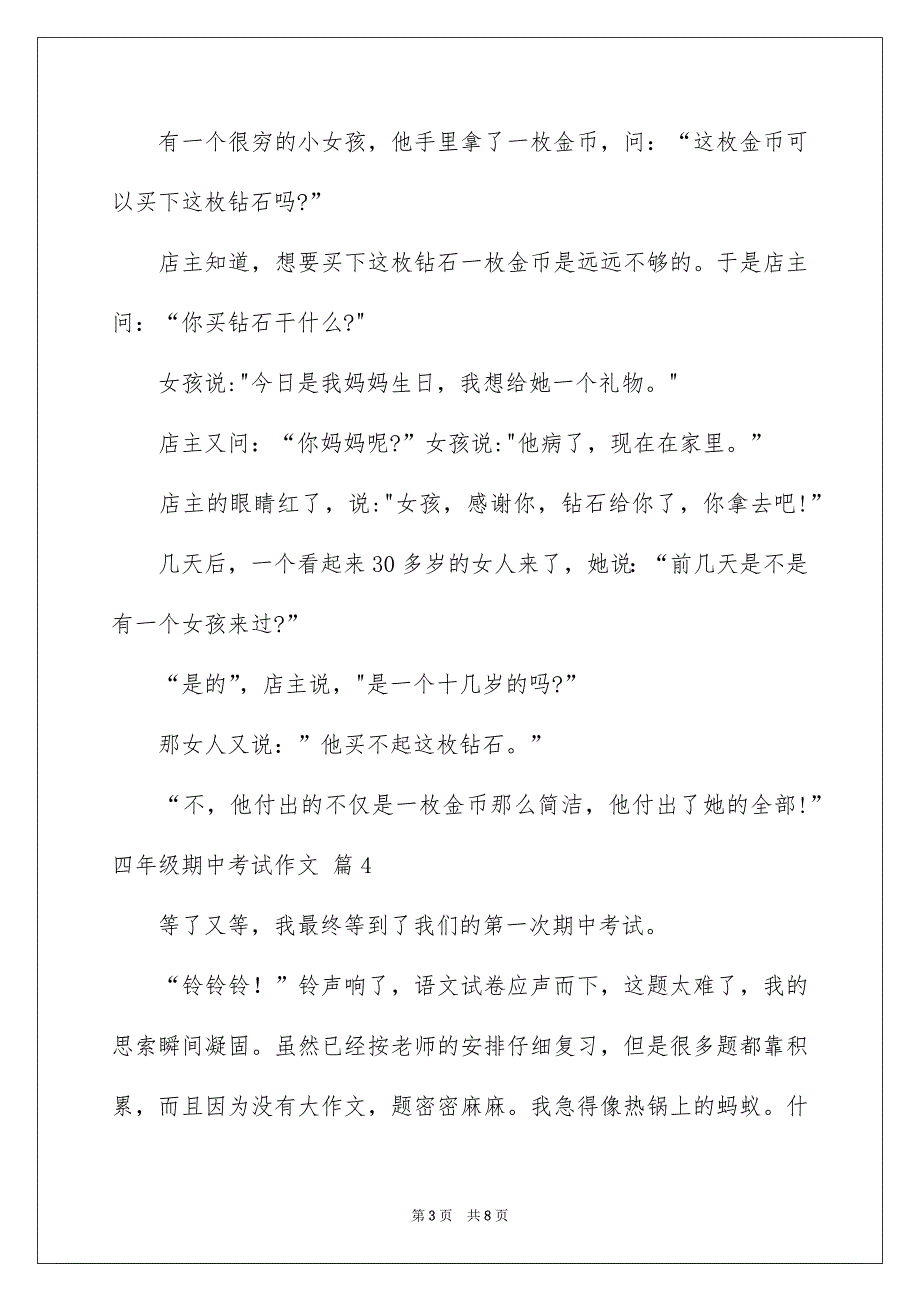 有一个很穷的小女孩，他手里拿了一枚金币，问：“这枚金币可
以买下这枚钻石吗?”
店主知道，想要买下这枚钻石一枚金币是远远不够的。于是店主
问：“你买钻石干什么?"
女孩说:"今日是我妈妈生日，我想给她一个礼物。"
店主又问：“你妈妈呢?”女孩说:"他病了，现在在家里。”
店主的眼睛红了，说:"女孩，感谢你，钻石给你了，你拿去吧!”
几天后，一个看起来 30 多岁的女人来了，她说：“前几天是不是
有一个女孩来过?”
“是的”，店主说，"是一个十几岁的吗?”
那女人又说：”他买不起这枚钻石。”
“不，他付出的不仅是一枚金币那么简洁，他付出了她的全部!”
四年级期中考试作文 篇 4
等了又等，我最终等到了我们的第一次期中考试。
“铃铃铃！”铃声响了，语文试卷应声而下，这题太难了，我的
思索瞬间凝固。虽然已经按老师的安排仔细复习，但是很多题都靠积
累，而且因为没有大作文，题密密麻麻。我急得像热锅上的蚂蚁。什
第 3 页 共 8 页